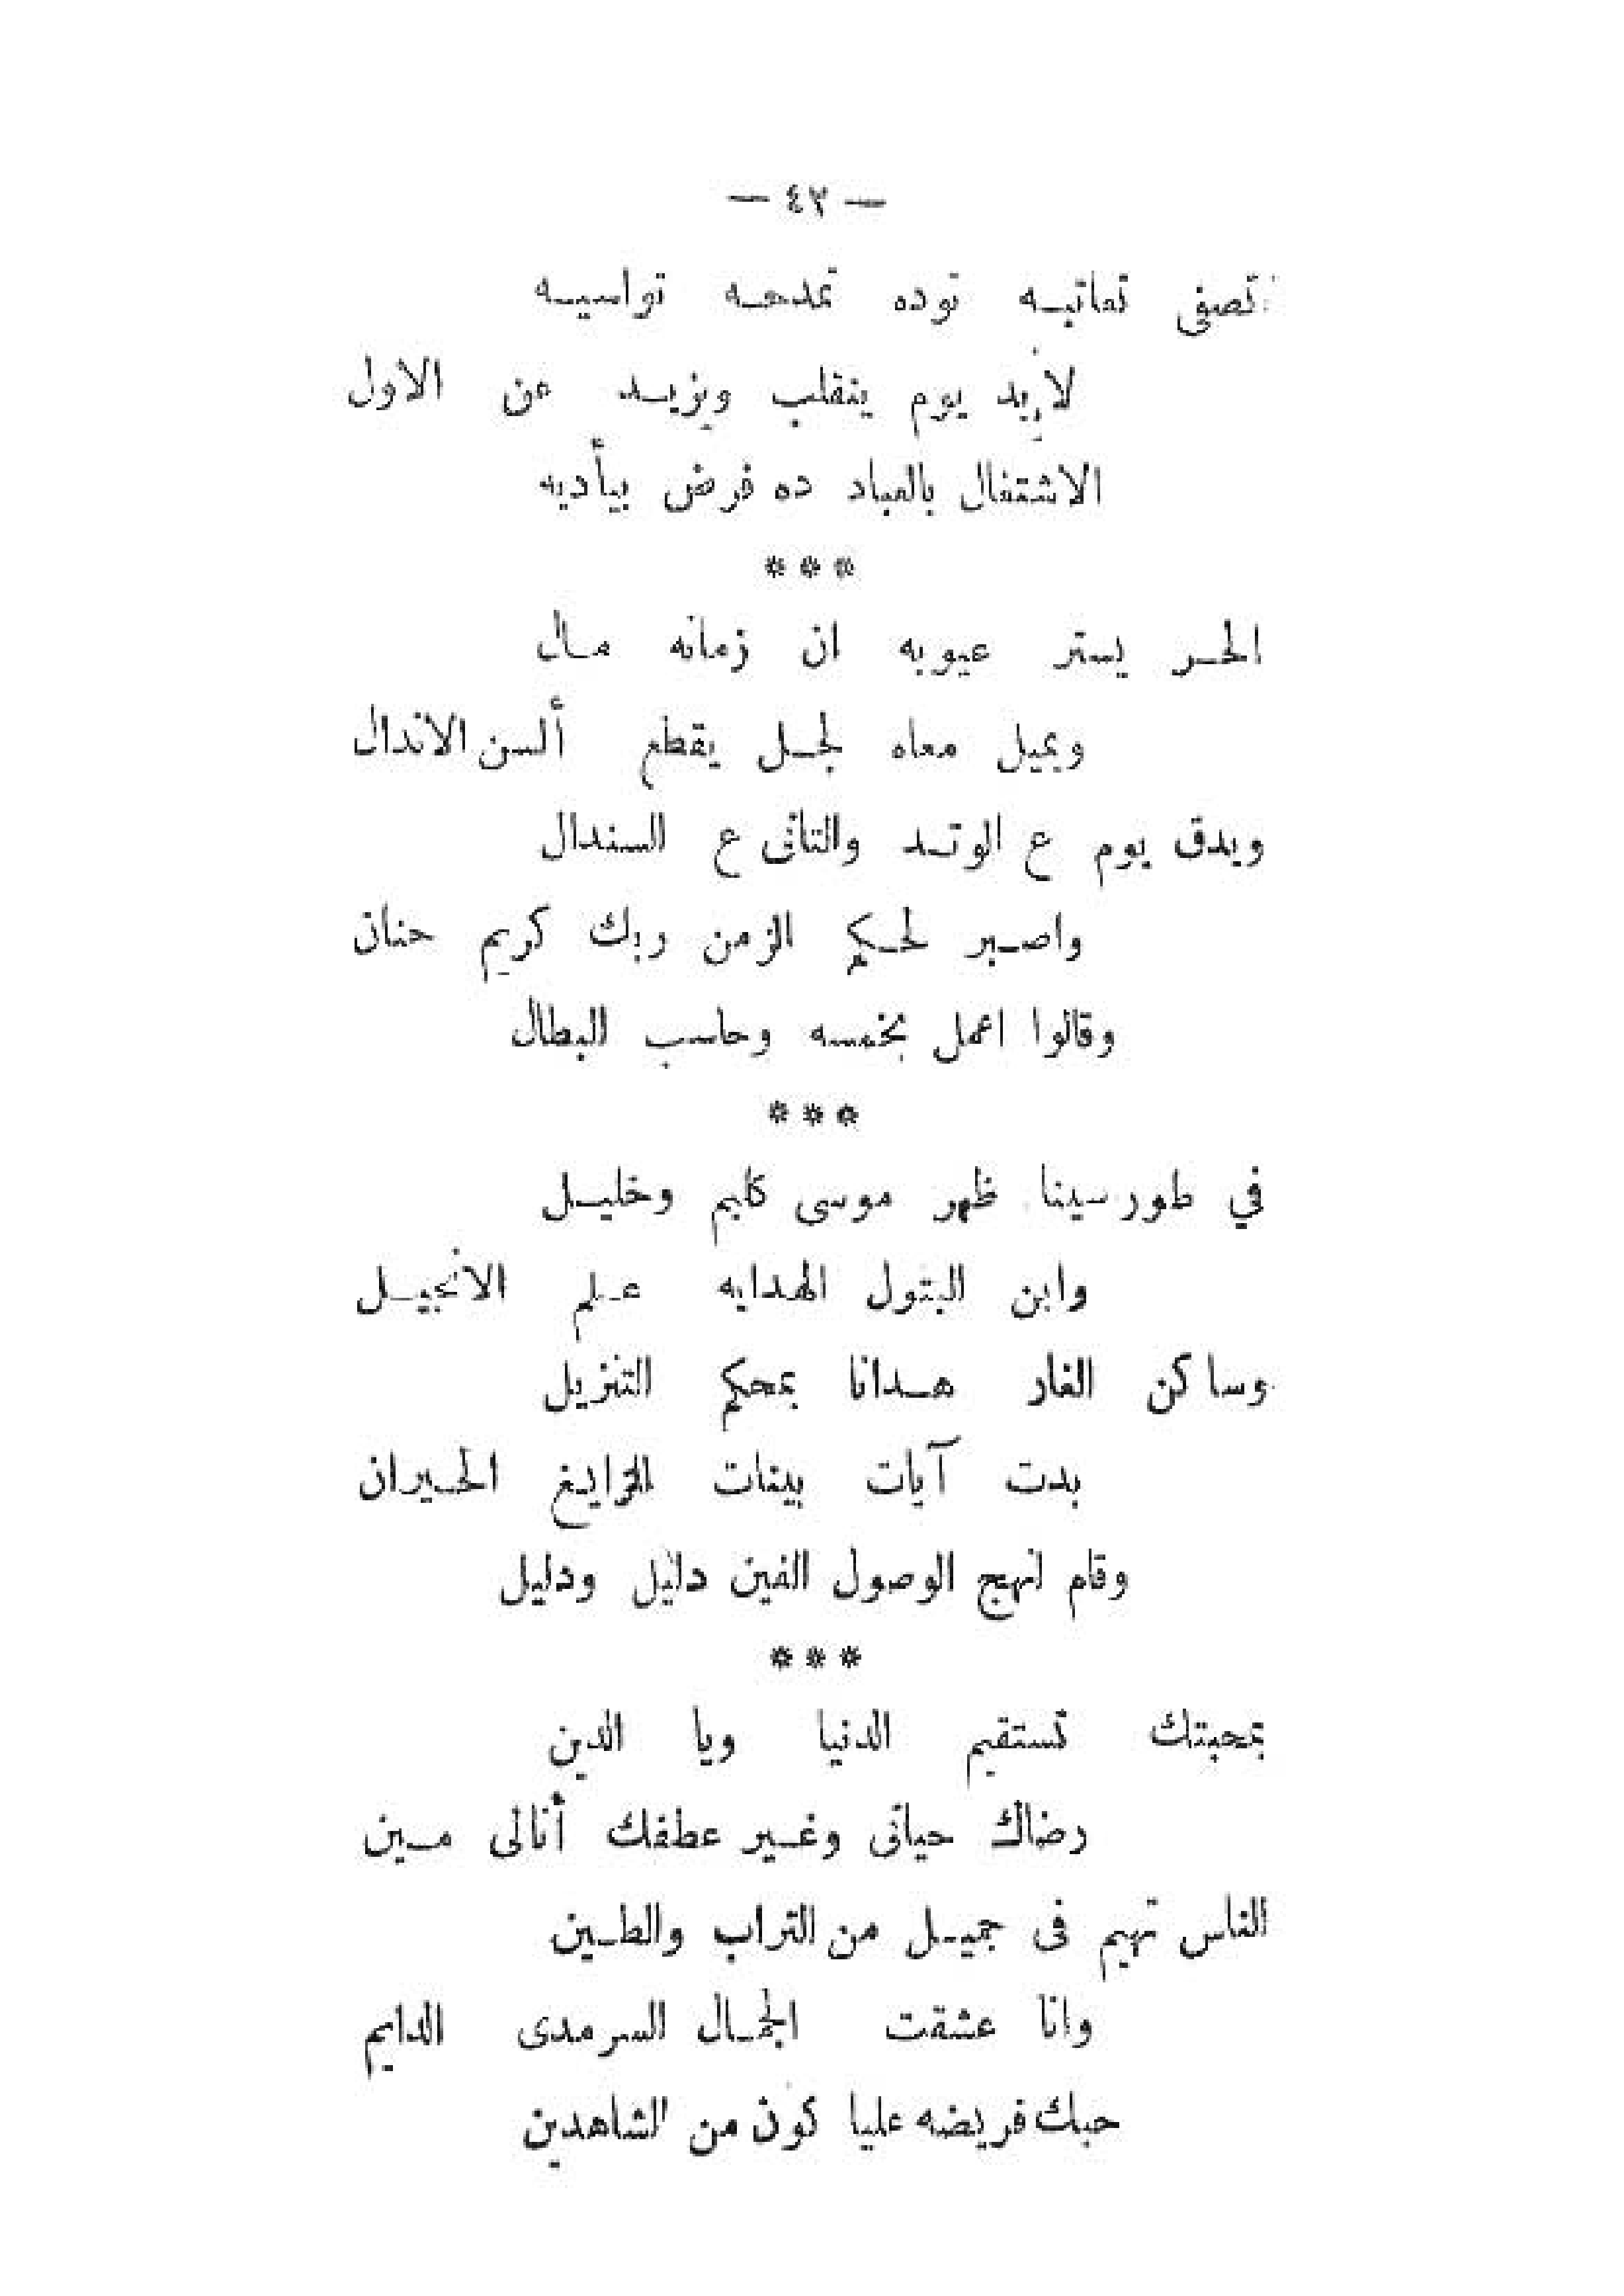 — ٤٣ —
تصفى تعاتبه توده تمدحه تواسيه
لا بد يوم ينقلب ويزيد عن الاول
الاشتغال بالعباد ده فرض بيأديه
* * *
الحر يستر عيوبه ان زمانه مال
ويميل معاه لجل يقطع ألسن الاندال
ويدق يوم ع الوتد والتانى ع السندال
واصبر لحكم الزمن ربك كريم حنان
وقالوا اعمل بخمسه وحاسب البطال
* * *
في طور سينا ظهر موسى كليم وخليل
وابن البتول الهدايه علم الانجيل
وساكن الغار هدانا بمحكم التنزيل
بدت آيات بينات للزايغ الحيران
وقام لنهج الوصول الفين دليل ودليل
* * *
بمحبتك تستقيم الدنيا ويا الدين
رضاك حياتى وغير عطفك أنالى مين
الناس تهيم فى جميل من التراب والطين
وانا عشقت الجمال السرمدى الدايم
حبك فريضه عليا كون من الشاهدين